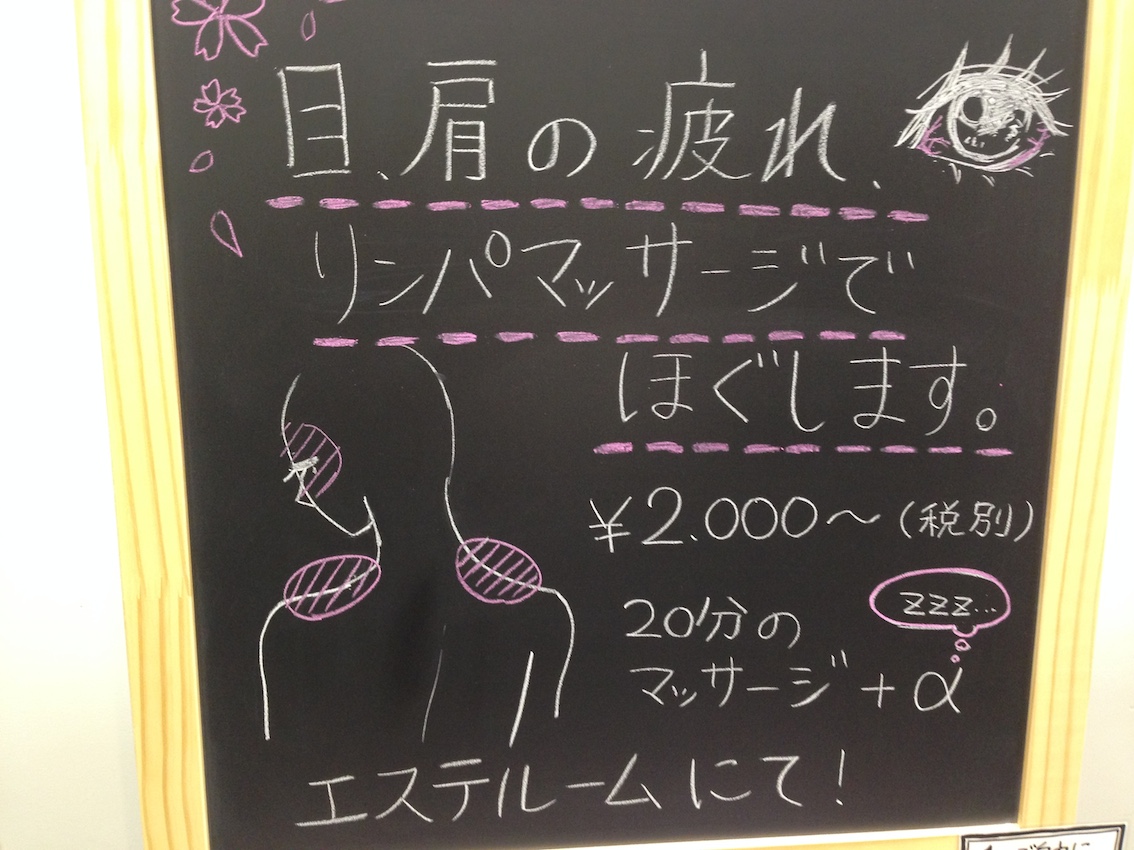 目、肩の疲れ、
リンパマッサージで
ほぐします。
¥2.000〜(税別)
20分の
マッサージ+α
zzz...
エステルームにて!